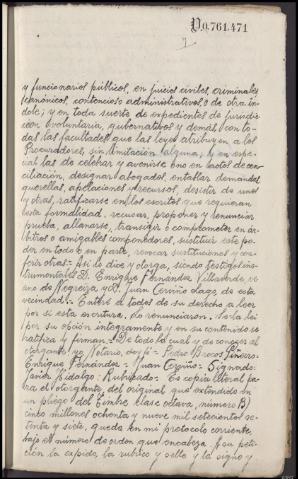 D.0.761.471
y funcionarios públicos, en juicios civiles, criminales
económicos, contencioso administrativos, o de otra ín-
dole; y en toda suerte de expedientes de jurisdic-
ción voluntaria, gubernativos y demás con to-
das las facultades que las leyes atribuyen a los
Procuradores, sin limitación alguna; y en espe-
cial las de celebrar y avenirse o no en actos de con-
ciliación, designar abogados, entablar demandas
querellas, apelaciones y recursos, desistir de unos
y otros, ratificarse en los escritos que requieran
esta formalidad, recusar, proponer y renunciar
prueba, allanarse, transigir o comprometer en ár-
bitros o amigables componedores, sustituir este po-
der en todo o en parte, revocar sustituciones y con-
ferir otras. Así lo dice y otorga, siendo testigos ins-
trumentales D. Enrique Fernández Villarnovo, ve-
cino de Negreira y D. Juan Cermiño de esta
vecindad. Enteré a todos de su derecho a leer
por sí esta escritura. Lo renunciaron. La leí
por su opción íntegramente y en su contenido se
ratifica y firman. De todo lo cual y de conocer al
otorgante, yo Notario, doy fe. Pedro Brocos Piñeiro.
Enrique Fernández. Juan Cermiño. Signado.
Hidalgo. Rubricado. Es copia literal pa-
ra el otorgante, del original que extendido en
un pliego del timbre clase octava, número B,
cinco millones ochenta y nueve mil setecientos se-
tenta y siete, queda en mi protocolo corriente,
bajo el número de orden que encabeza. A su peti-
ción la expido, la rubrico y sello y la signo y